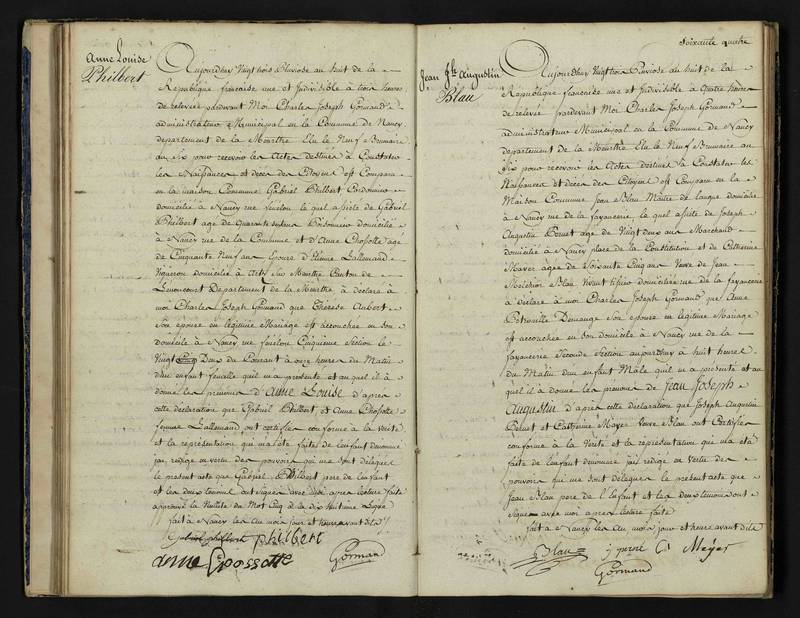 Anne Louise
Philbert
Aujourdhuy Vingt trois Pluviose an huit de la
Republique francoise une et Indivisible à trois heures
de relevée pardevant Moi Charles Joseph Gormand
administrateur Municipal en la Commune de Nancy
departement de la Meurthe Elu le Neuf Brumaire
an Six pour recevoir les Actes destinés à Constater
les Naissances et deces des Citoyens est Comparu
en la maison Commune Gabriel Philbert Cordonnier
domicilié à Nancy rue fenelon le quel assisté de Gabriel
Philbert age de Quarante ans domicilié
à Nancy rue de la Commune et d'Anne Chossotte age
de Cinquante Neuf ans Epouse d'Etienne Lallemand
Vigneron domicilié à Canton de
Lenoncourt Departement de la Meurthe à déclaré à
moi Charles Joseph Gormand que Thérèse Aubert
Son epouse en legitime Mariage est accouchée en son
domicile à Nancy rue fénélon Cinquieme Section le
Vingt Cinq Deux du Courant à onze heures du Matin
d'un enfant femelle quil m'a presenté et au quel il à
donné les prenoms d'Anne Louise d'apres
cette declaration que Gabriel Philbert et Anne Chossotte
femme Lallemand ont certifiés conforme à la verité
et la representation qui m'a été faite de lenfant denommé
jai redigé en vertu des pouvoirs qui me sont délégués
le present acte que Gabriel Philbert pere de l'enfant
et les deux temoins ont signés avec moi apres lecture faite
approuvé la Nullité du Mot Cinq à la dix huitieme Ligne
fait à Nancy les an mois jour et heure avant dits
Gabriel philbert philbert
anne Chossotte Gormand
Soixante quatre
Jean Jph Augustin
Blau
Aujourdhuy Vingt trois Pluviose an huit de la
Republique francoise une et Indivisible à Quatre heures
de relevée pardevant Moi Charles Joseph Gormand
administrateur Municipal en la Commune de Nancy
departement de la Meurthe Elu le Neuf Brumaire an
Six pour recevoir les Actes destinés à Constater les
Naissances et deces des Citoyens est Comparu en la
Maison Commune Jean Blau Maitre de langue domicilié
à Nancy rue de la fayancerie le quel assisté de Joseph
Augustin Perret age de Vingt deux ans Marchand
domicilié à Nancy place de la Constitution et de Catherine
Mayer agée de Soixante Cinq ans Veuve de Jean
Melchior Blau domiciliée rue de la fayancerie
à déclaré à moi Charles Joseph Gormand que Anne
Petronille Demange Son epouse en legitime Mariage
est accouchée en son domicile à Nancy rue de la
fayancerie Seconde Section aujourdhuy à huit heures
du Matin d'un enfant Mâle quil m'a presenté et au
quel il à donné les prenoms de Jean Joseph
Augustin d'apres cette declaration que Joseph Augustin
Perret et Catherine Mayer Veuve Blau ont Certifiés
conforme à la Verité et la représentation qui m'a été
faite de lenfant denommé jai redigé en Vertu des
pouvoirs qui me sont délégués le present acte que
Jean Blau pere de l'Enfant et les deux temoins ont
signés avec moi apres lecture faite
fait à Nancy les an mois jour et heure avant dits
J Blau C Meyer
Gormand